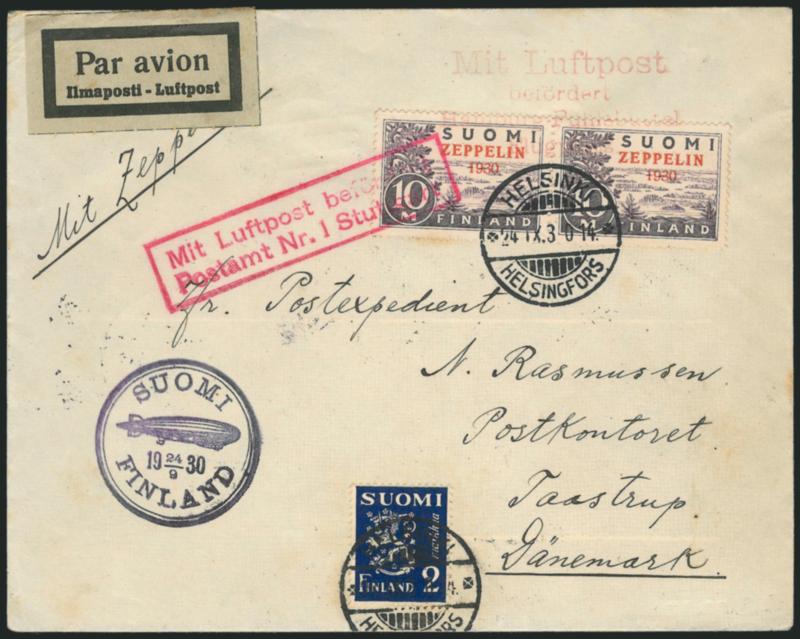 Par avion
Ilmaposti - Luftpost
Mit Luftpost
befördert
SUOMI
ZEPPELIN
1930
10
FINLAND
SUOMI
ZEPPELIN
1930
FINLAND
HELSINKI
24 IX.3
HELSINGFORS
Mit
Mit Luftpost
Postamt Nr. 1
Hr. Postexpedient
N. Rasmussen
Postkontoret
Taastrup
Dänemark.
SUOMI
19 24/9 30
FINLAND
SUOMI
markkaa
FINLAND 2
HELSINGFORS